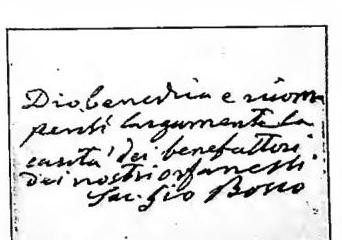 Dio benedica e ricom
pensi largamente la
carità dei benefattori
dei nostri orfanelli.
Sac. Gio Bosco